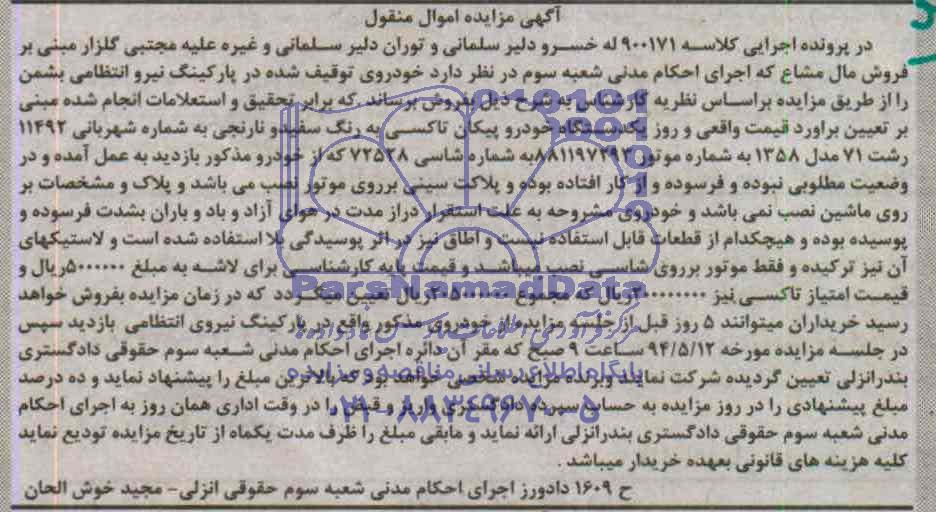 آگهی مزایده اموال منقول
در پرونده اجرایی کلاسه ۹۰۰۱۷۱ له خسرو دلیر سلمانی و توران دلیر سلمانی و غیره علیه مجتبی گلزار مبنی بر
فروش مال مشاع که اجرای احکام مدنی شعبه سوم در نظر دارد خودروی توقیف شده در پارکینگ نیرو انتظامی بشمن
را از طریق مزایده براساس نظریه کارشناس به شرح ذیل بفروش برساند که برابر تحقیق و استعلامات انجام شده مبنی
بر تعیین براورد قیمت واقعی و روز یکدستگاه خودرو پیکان تاکسی به رنگ سفیدو نارنجی به شماره شهربانی ۱۱۴۹۲
رشت ۷۱ مدل ۱۳۵۸ به شماره موتور به شماره شاسی ۷۲۵۲۸ که از خودرو مذکور بازدید به عمل آمده و در
وضعیت مطلوبی نبوده و فرسوده و از کار افتاده بوده و پلاکت سینی برروی موتور نصب می باشد و پلاک و مشخصات بر
روی ماشین نصب نمی باشد و خودروی مشروحه به علت استقرار دراز مدت در هوای آزاد و باد و باران بشدت فرسوده و
پوسیده بوده و هیچکدام از قطعات قابل استفاده نیست و اطاق نیز در اثر پوسیدگی بلا استفاده شده است و لاستیکهای
آن نیز ترکیده و فقط موتور برروی شاسی نصب میباشد و قیمت پایه کارشناسی برای لاشه به مبلغ ۵۰۰۰۰۰۰ریال و
قیمت امتیاز تاکسی نیز ریال که مجموع ریال تعیین میگردد که در زمان مزایده بفروش خواهد
رسید خریداران میتوانند ۵ روز قبل از جلسه مزایده از خودروی مذکور واقع در پارکینگ نیروی انتظامی بازدید سپس
در جلسه مزایده مورخه ۹۴/۵/۱۲ ساعت ۹ صبح که مقر آن دائره اجرای احکام مدنی شعبه سوم حقوقی دادگستری
بندرانزلی تعیین گردیده شرکت نمایند وبرنده مزایده شخصی خواهد بود که بالاترین مبلغ را پیشنهاد نماید و ده درصد
مبلغ پیشنهادی را در روز مزایده به حساب سپرده دادگستری واریز و قبض را در وقت اداری همان روز به اجرای احکام
مدنی شعبه سوم حقوقی دادگستری بندرانزلی ارائه نماید و مابقی مبلغ را ظرف مدت یکماه از تاریخ مزایده تودیع نماید
کلیه هزینه های قانونی بعهده خریدار میباشد .
ح ۱۶۰۹ دادورز اجرای احکام مدنی شعبه سوم حقوقی انزلی- مجید خوش الحان
ParsNamadData
پایگاه اطلاع رسانی مناقصه و مزایده
۰۲۱-۸۸۳۴۹۶۷۰-۵